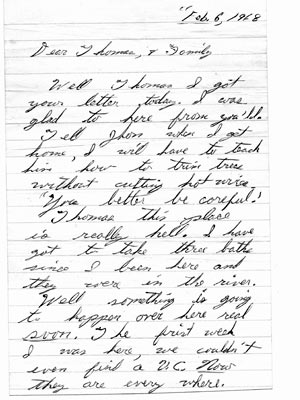 "Feb. 6, 1968
Dear Thomas, & Family
Well Thomas I got
your letter today. I was
glad to here from you'll.
Tell Jhon when I get
home, I will have to teach
him how to trim trees
without cutting hot wires.
"You better be careful!
Thomas this place
is really hell. I have
got to take three baths
since I been here and
they were in the river.
Well something is going
to happen over here real
soon. The first week
I was here, we couldn't
even find a V.C. Now
they are every where.